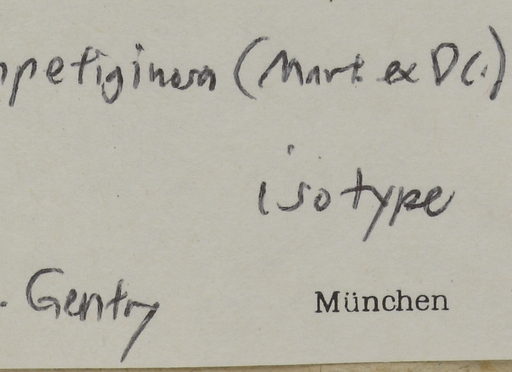 mpetiginosa (Mart ex DC.)
isotype
. Gentry
München